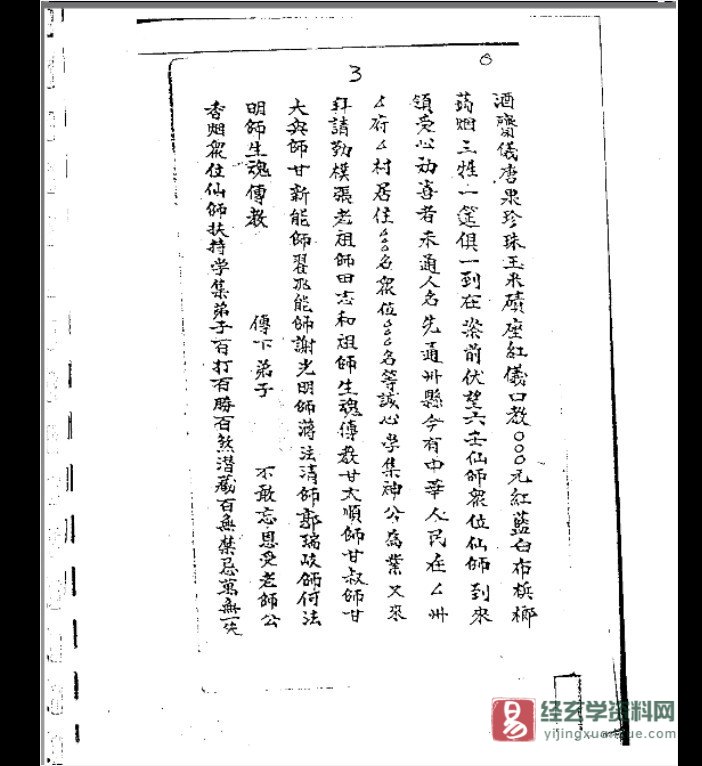 3
酒醮儀唐果珍珠玉米磧座紅儀口教〇〇〇元紅藍白布梹榔
蒟烟三牲一筵俱一到在案前伏望六壬仙師眾位仙師到來
領受心劝喜者未通人名先通州縣今有中華人民在厶州
厶府厶村居住厶厶名眾位厶厶名等誠心學集神公為業又來
拜請勤樸張老祖師田志和祖師生魂傳教甘大順師甘叔師甘
大兵師甘新能師翟兆能師謝光明師蒋法清師郭瑞岐師何法
明師生魂傳教 傳下弟子 不敢忘恩受老師公
香烟眾位仙師扶持学集弟子百打百勝百煞潜藏百無禁忌萬無一失
经玄学资料网
yijingxuanxue.com